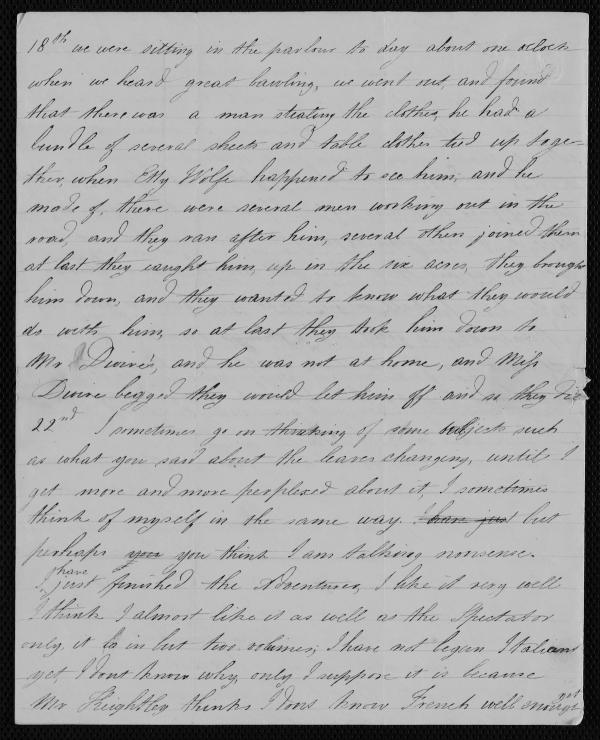 18th we were sitting in the parlour to day about one oclock
when we heard great bawling, we went out, and found
that there was a man stealing the clothes, he had a
bundle of several sheets and table clothes tied up toge-
ther, when My Wolfe happened to see him, and he
made of, there were several men working out in the
road, and they ran after him, several others joined them
at last they caught him, up in the six acres, they brought
him down, and they wanted to know what they would
do with him, so at last they took him down to
Mr Dwire's, and he was not at home, and Miss
Dwire begged they would let him off and so they did
22nd I sometimes go on thinking of some subjects such
as what you said about the leaves changing, until I
get more and more perplexed about it, I sometimes
think of myself in the same way. I have just but
perhaps you you think I am talking nonsense.
I have just finished the Adventurer, I like it very well
I think I almost like it as well as the Spectator
only it is in but two volumes; I have not began Italian
yet, I dont know why, only I suppose it is because
Mr Keightley thinks I dont know French well enough yet